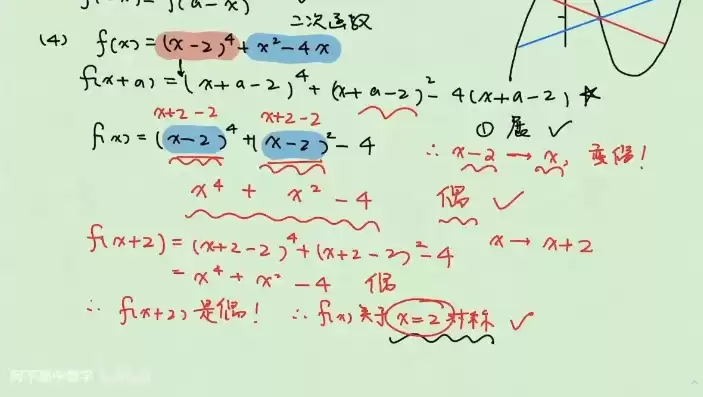 f(a-x) ✓
二次函数
(4) f(x)=(x-2)⁴+x²-4x
f(x+a)=(x+a-2)⁴+(x+a-2)²-4(x+a-2)
x+2-2 x+2-2 ① 展 ✓
f(x)=(x-2)⁴+(x-2)²-4 ∴ x-2→x, 变偶!
x⁴+x²-4 偶 ✓
f(x+2)=(x+2-2)⁴+(x+2-2)²-4 x→x+2
=x⁴+x²-4 偶
∴ f(x+2)是偶! ∴ f(x)关于x=2对称 ✓